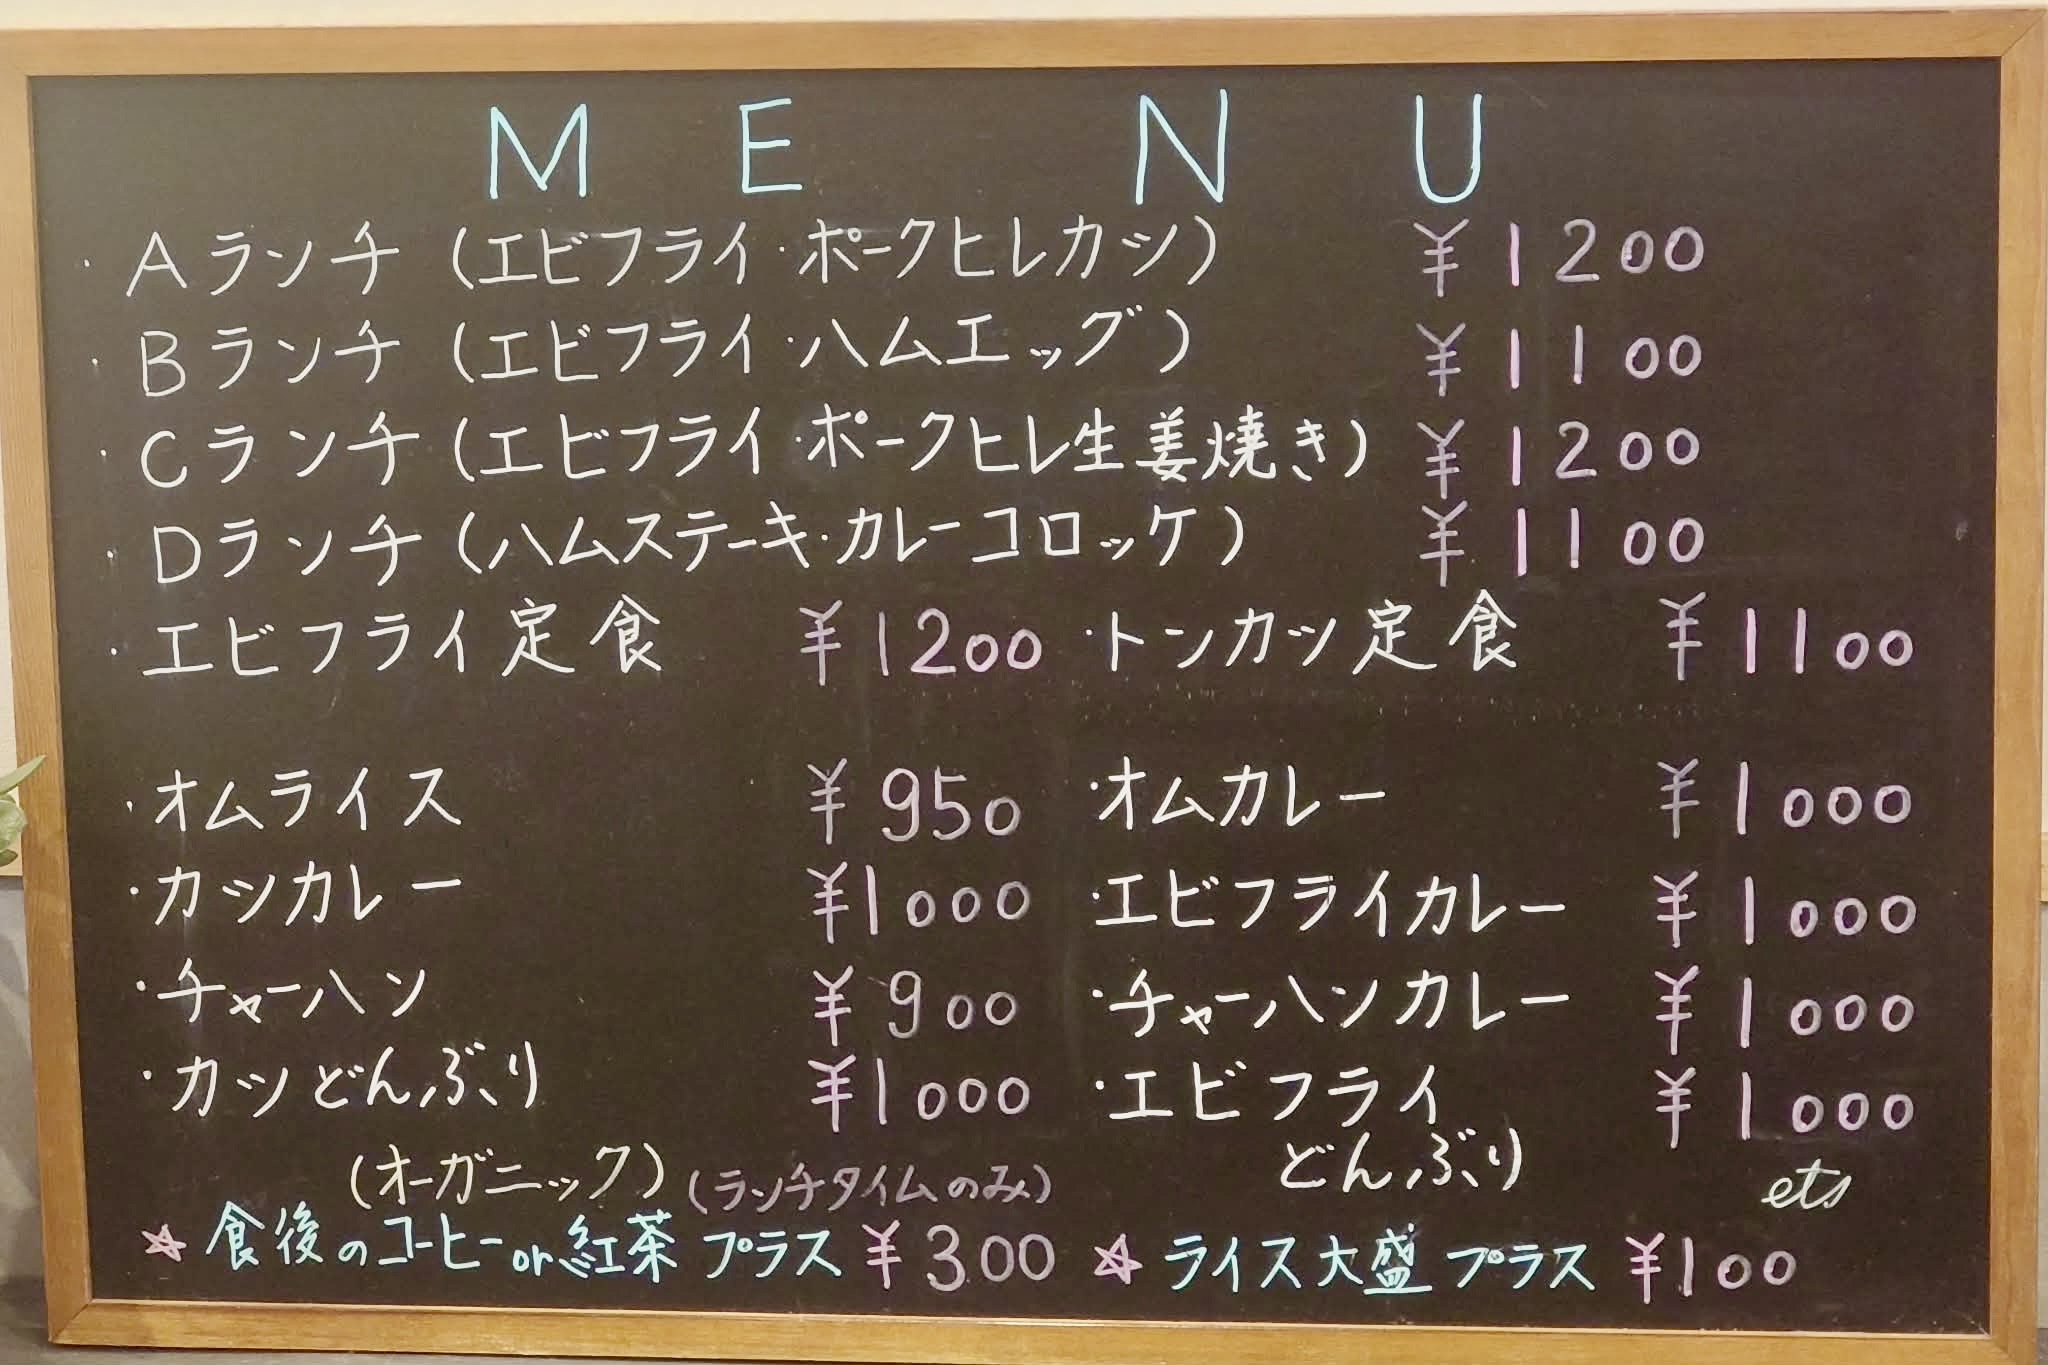 MENU
・Aランチ（エビフライ・ポークヒレカツ） ¥1200
・Bランチ（エビフライ・ハムエッグ） ¥1100
・Cランチ（エビフライ・ポークヒレ生姜焼き） ¥1200
・Dランチ（ハムステーキ・カレーコロッケ） ¥1100
・エビフライ定食 ¥1200 ・トンカツ定食 ¥1100
・オムライス ¥950 ・オムカレー ¥1000
・カツカレー ¥1000 ・エビフライカレー ¥1000
・チャーハン ¥900 ・チャーハンカレー ¥1000
・カツどんぶり ¥1000 ・エビフライ ¥1000
どんぶり
（オーガニック）（ランチタイムのみ） ets
☆食後のコーヒーor紅茶 プラス ¥300 ☆ライス大盛 プラス ¥100